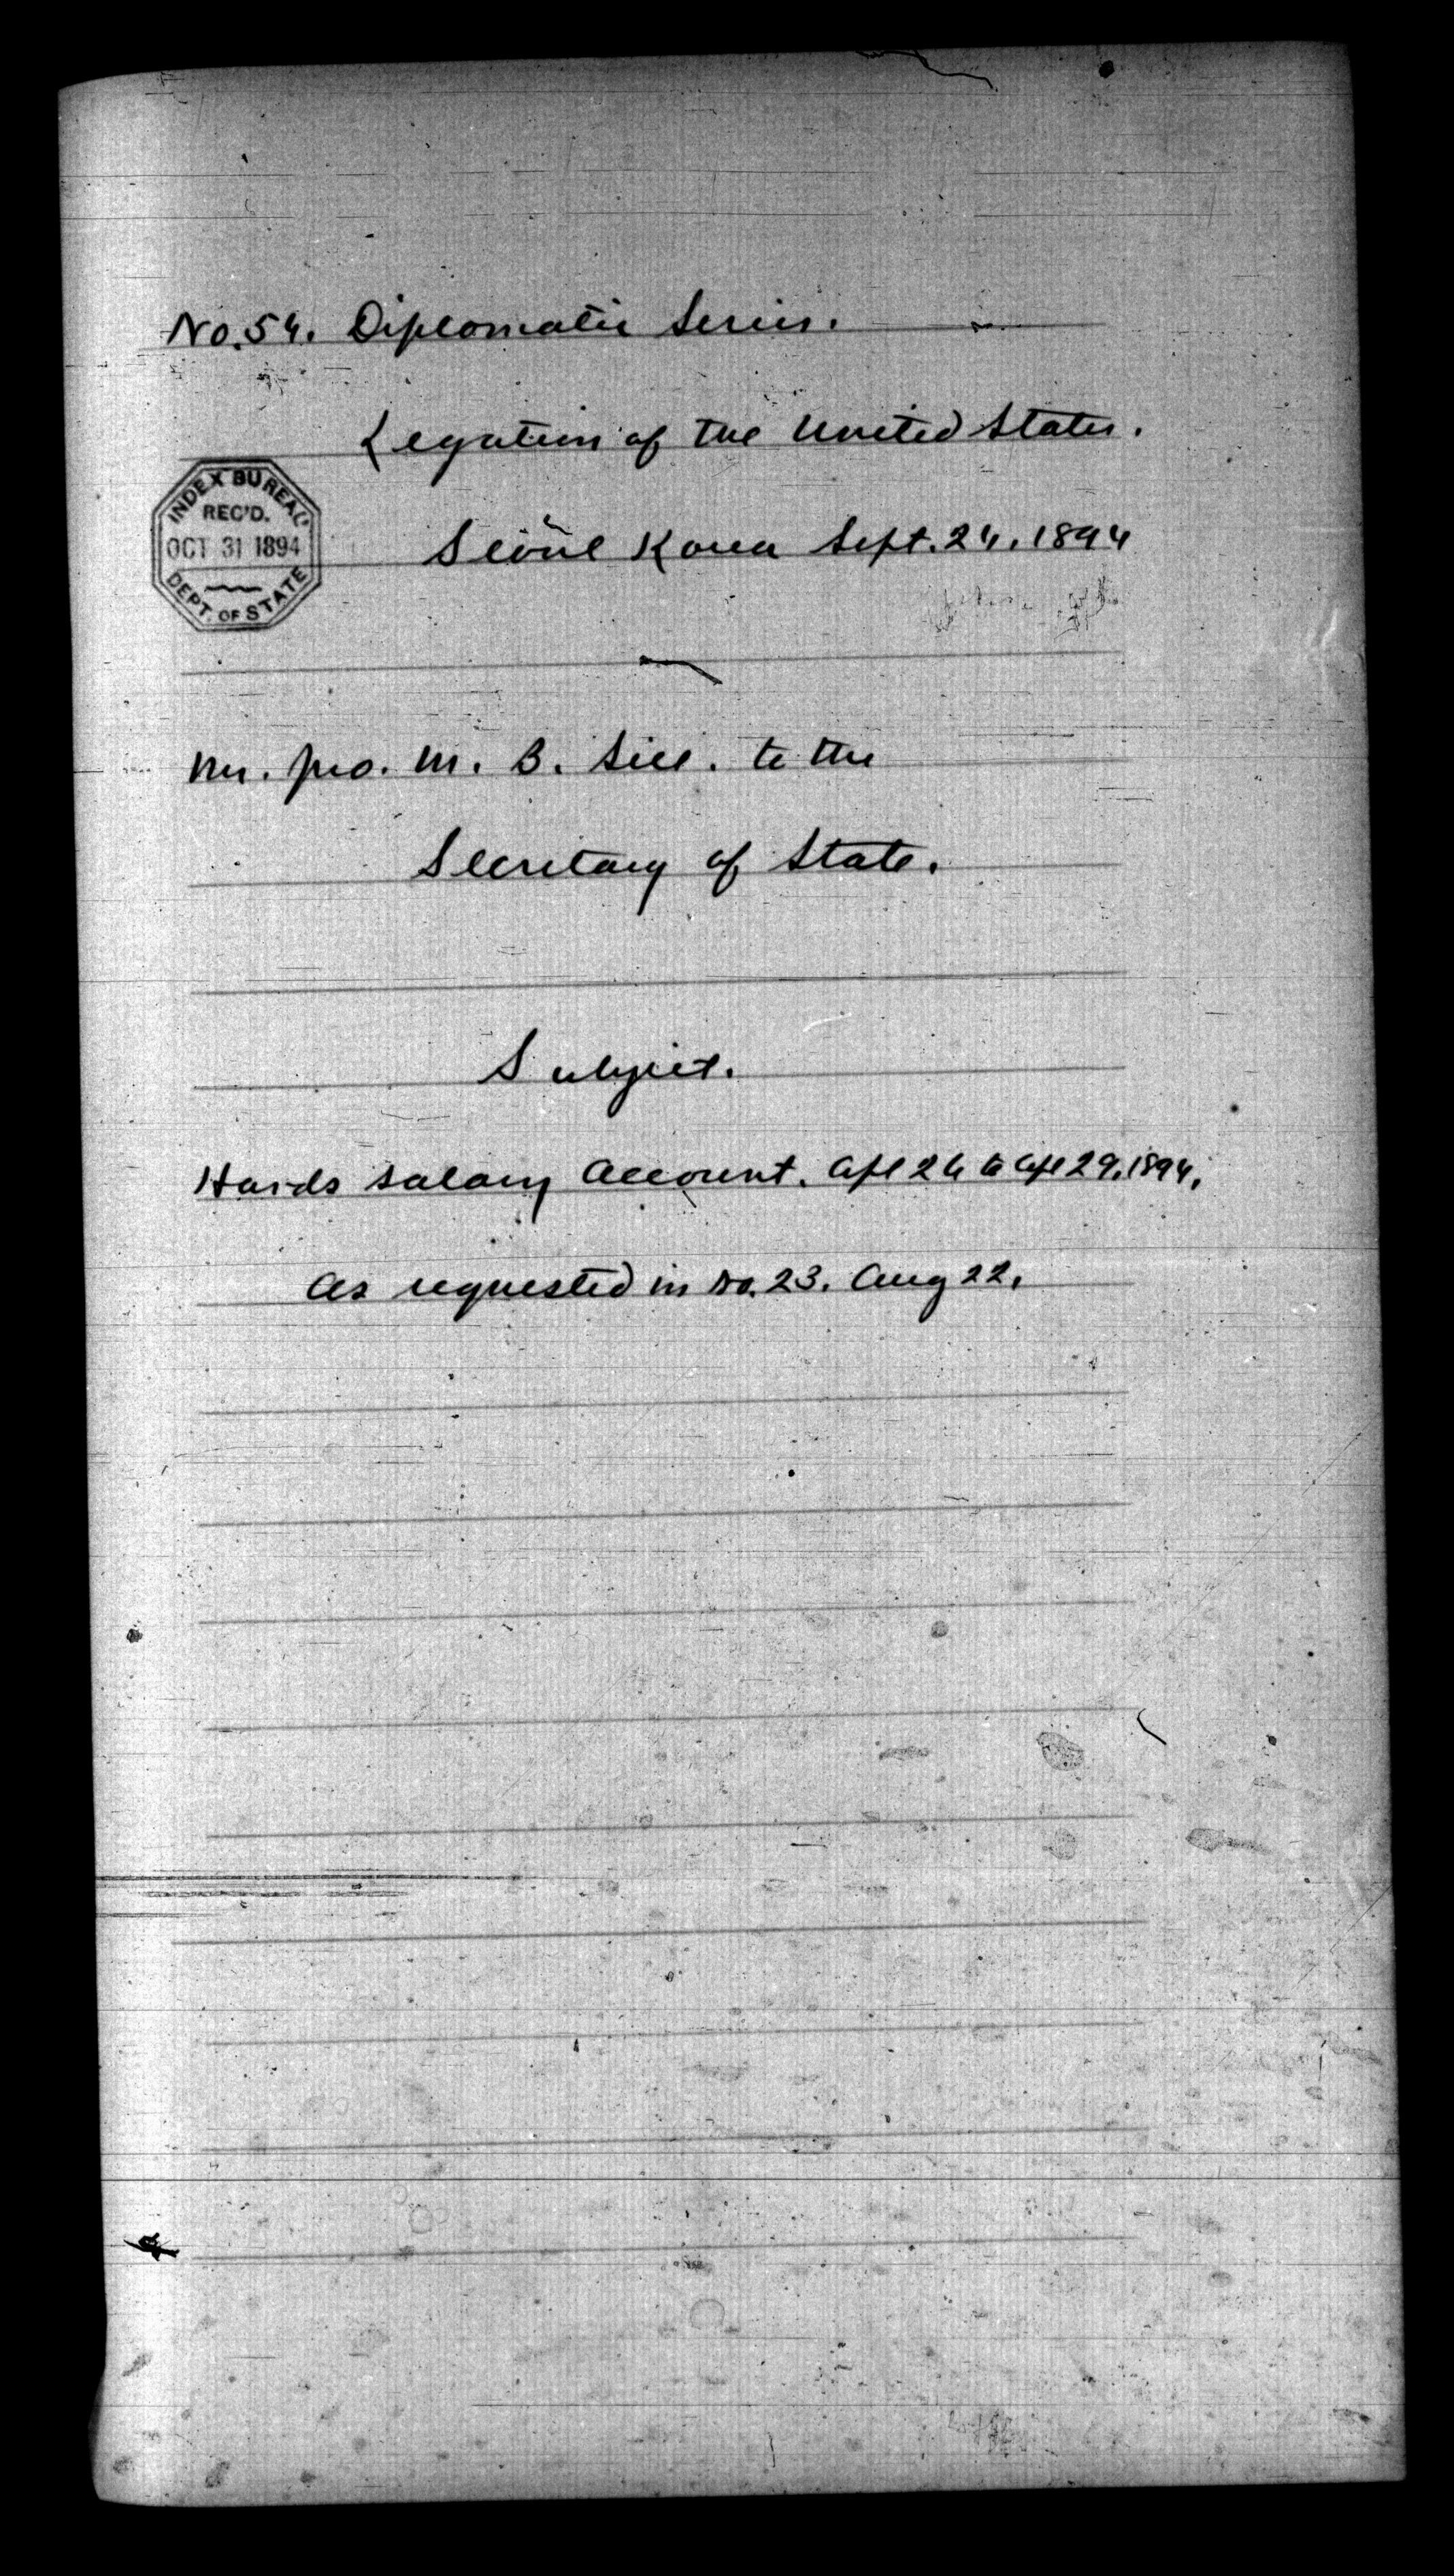 No. 54. Diplomatic Series.
Legation of the United States.
INDEX BUREAU
REC'D.
OCT 31 1894
DEPT. OF STATE
Seoul Korea Sept. 24. 1894
Mr. Jno. M. B. Sill. to the
Secretary of State.
Subject.
salary account. Apl 26 to Apl 29. 1894.
as requested in No. 23. Aug 22.